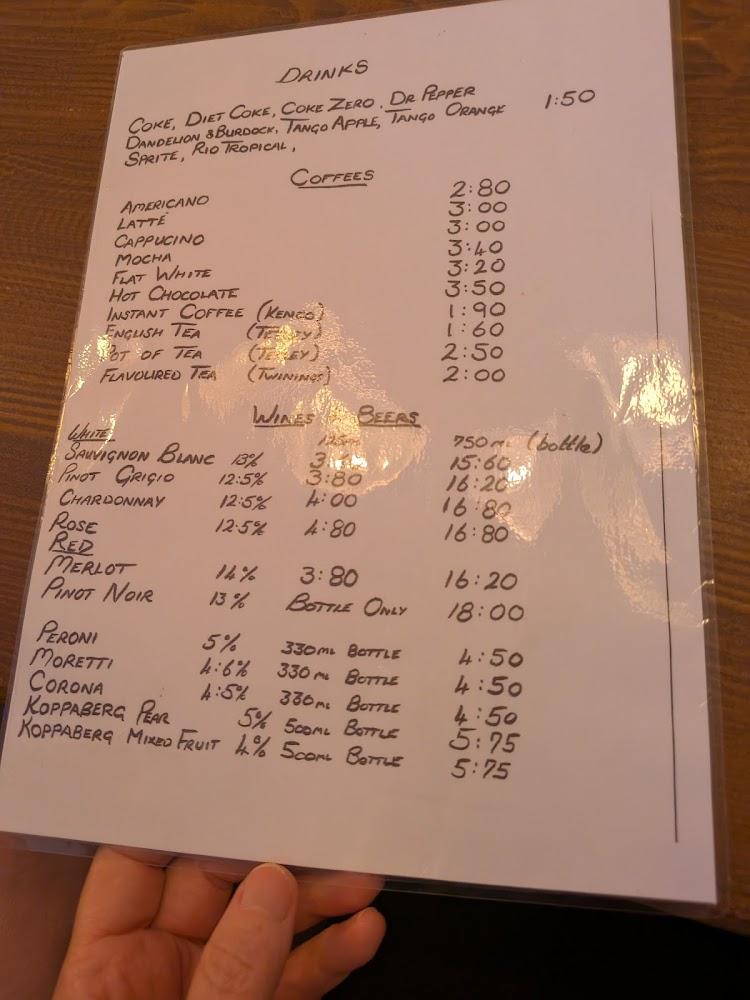 DRINKS
COKE, DIET COKE, COKE ZERO, DR PEPPER 1:50
DANDELION & BURDOCK, TANGO APPLE, TANGO ORANGE
SPRITE, RIO TROPICAL,
COFFEES
AMERICANO 2:80
LATTÉ 3:00
CAPPUCINO 3:00
MOCHA 3:40
FLAT WHITE 3:20
HOT CHOCOLATE 3:50
INSTANT COFFEE (KENCO) 1:90
ENGLISH TEA (TETLEY) 1:60
POT OF TEA (TETLEY) 2:50
FLAVOURED TEA (TWININGS) 2:00
WINES & BEERS
WHITE 125ml 750ml (bottle)
SAUVIGNON BLANC 13% 15:60
PINOT GRIGIO 12:5% 3:80 16:20
CHARDONNAY 12:5% 4:00 16:80
ROSE 12:5% 4:80 16:80
RED
MERLOT 14% 3:80 16:20
PINOT NOIR 13% BOTTLE ONLY 18:00
PERONI 5% 330ML BOTTLE 4:50
MORETTI 4:6% 330ML BOTTLE 4:50
CORONA 4:5% 330ML BOTTLE 4:50
KOPPABERG PEAR 5% 500ML BOTTLE 5:75
KOPPABERG MIXED FRUIT 4% 500ML BOTTLE 5:75